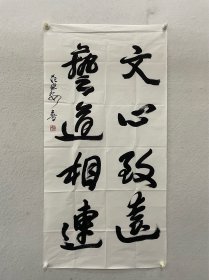 文心致遠
藝道相連